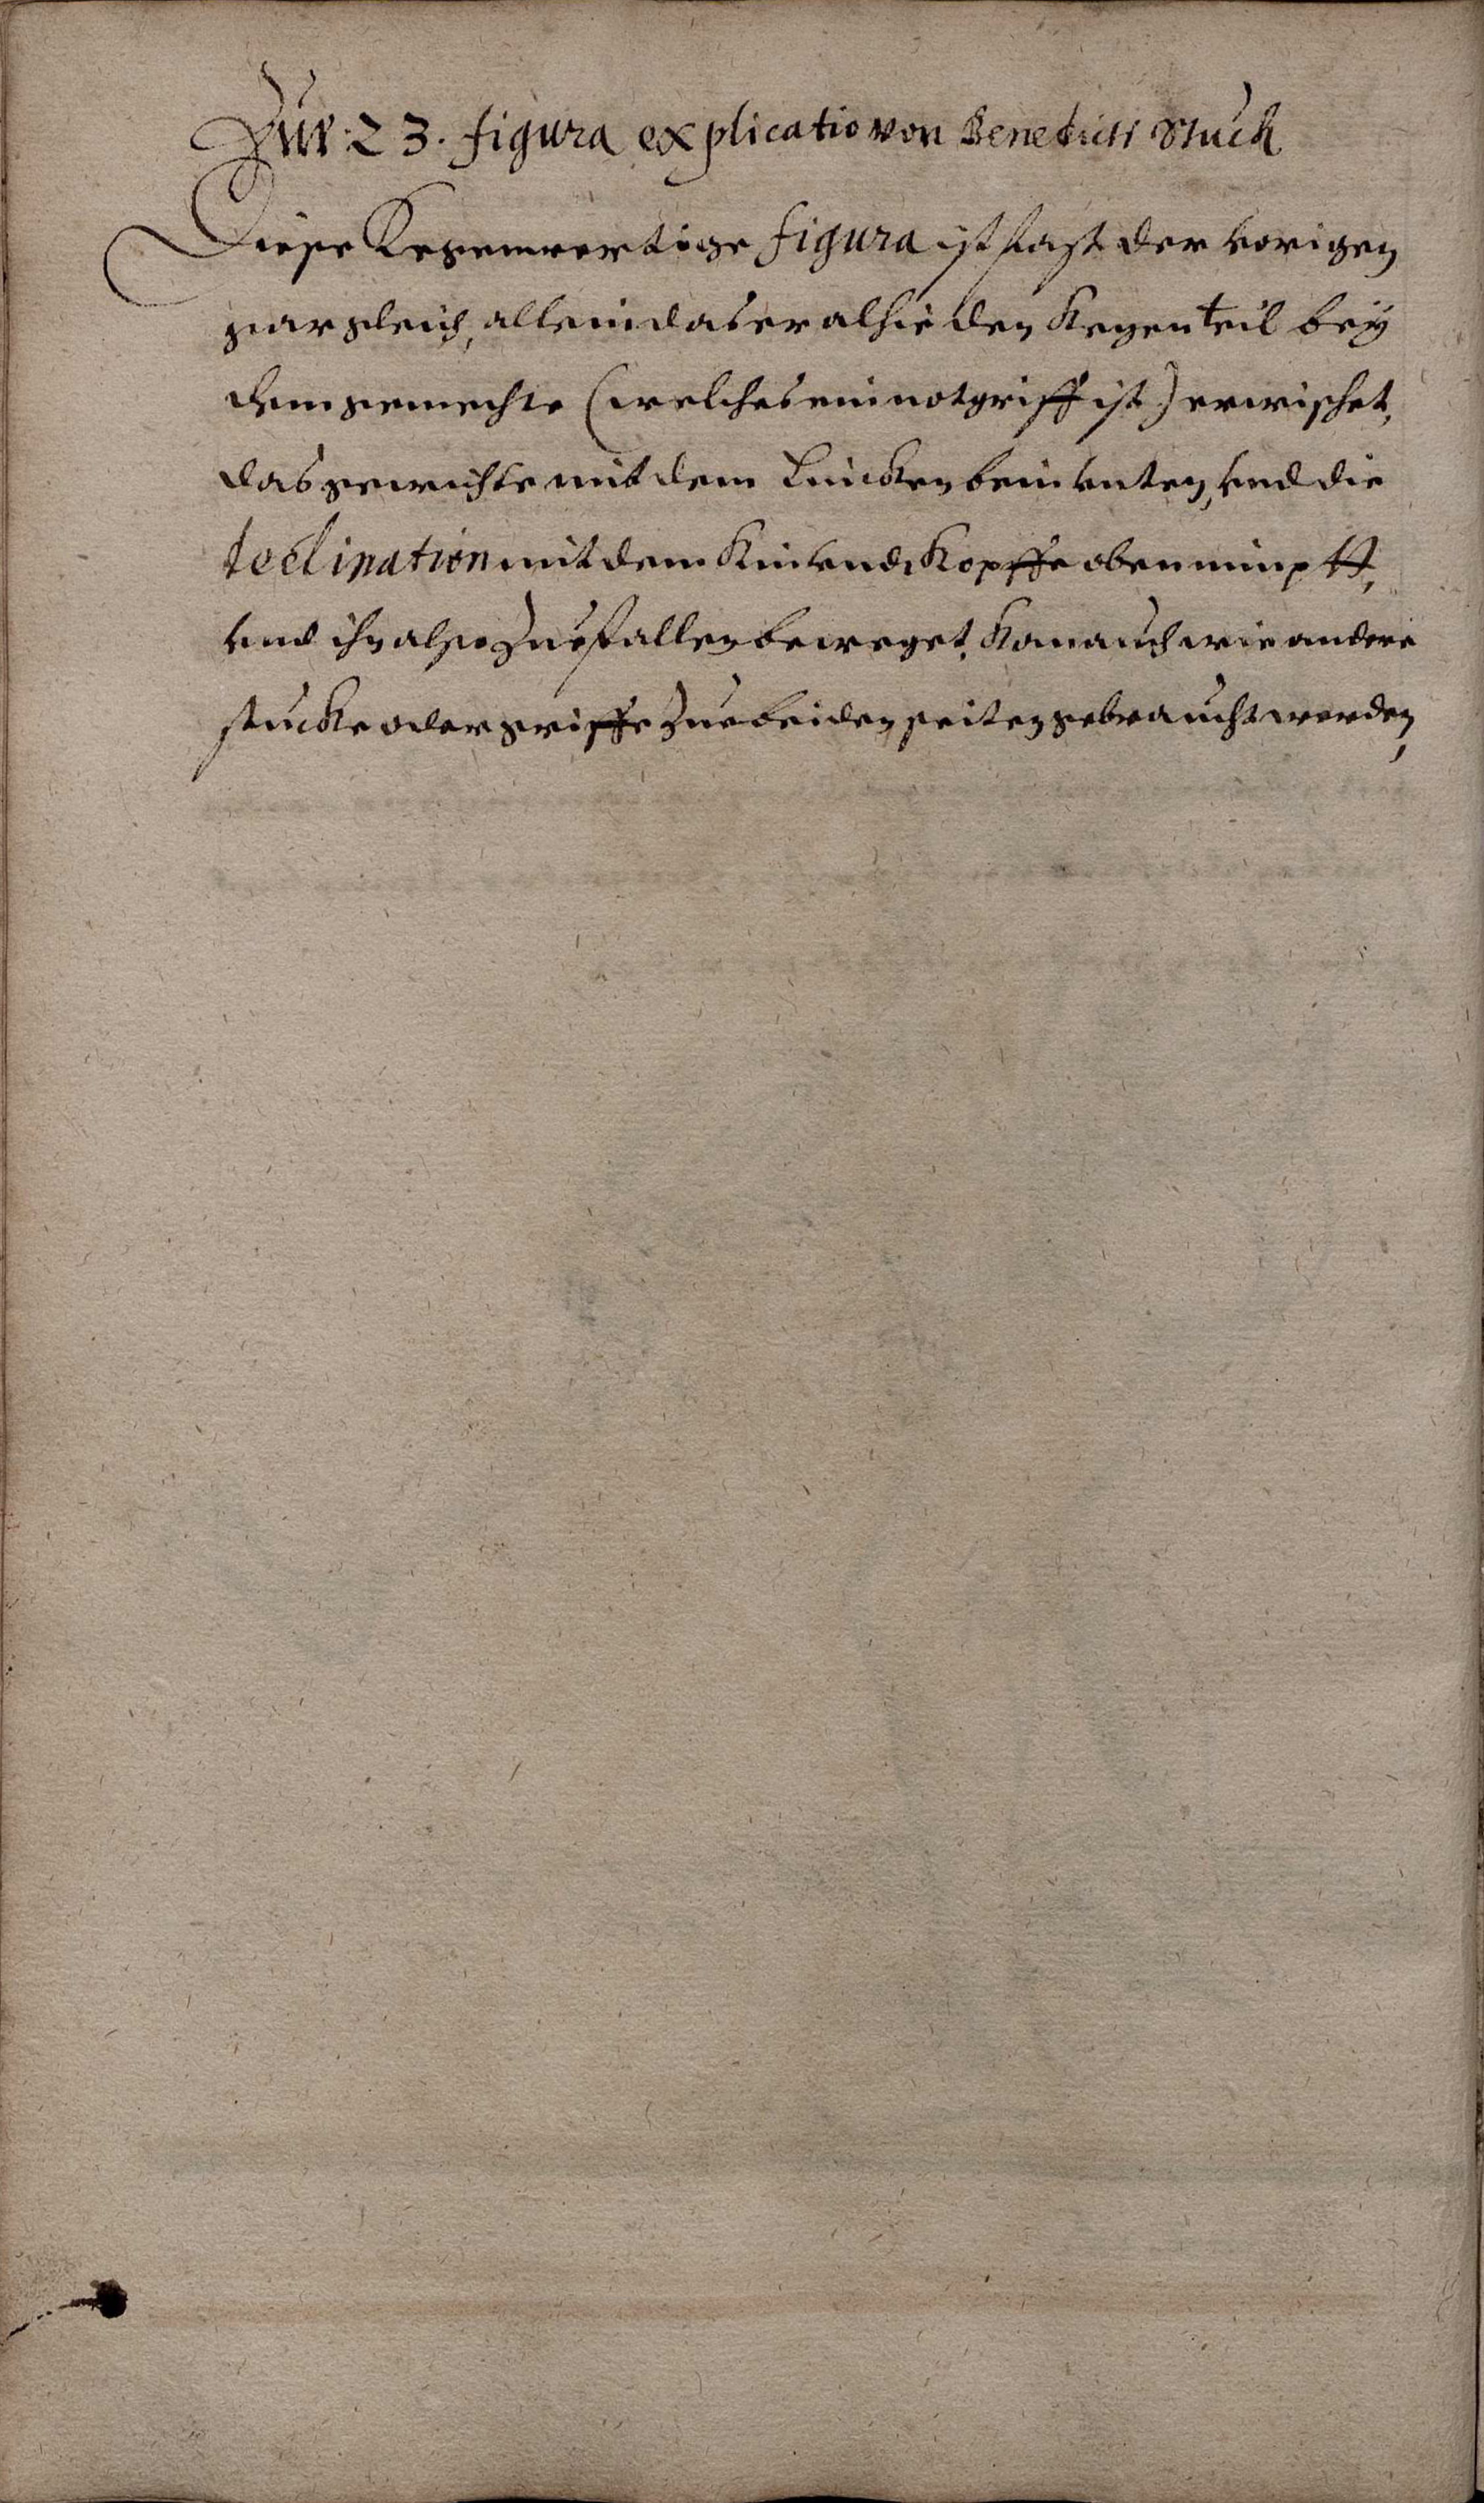 Zur: 23. figura explicatio von Benedicti Stuck
Diese Kegenwertige figura ist fast der vorigen
gar gleich, allein das er alhie den Kegenteil bey
dem gemechte (welches ein notgriff ist) erwischet,
das gewichte mit dem Lincken bein unten, und die
declination mit dem Kin und Kopffe oben nimptt,
und ihn also zue fallen beweget. Kan auch wie andere
stucke oder griffe zue beiden seiten gebraucht werden,